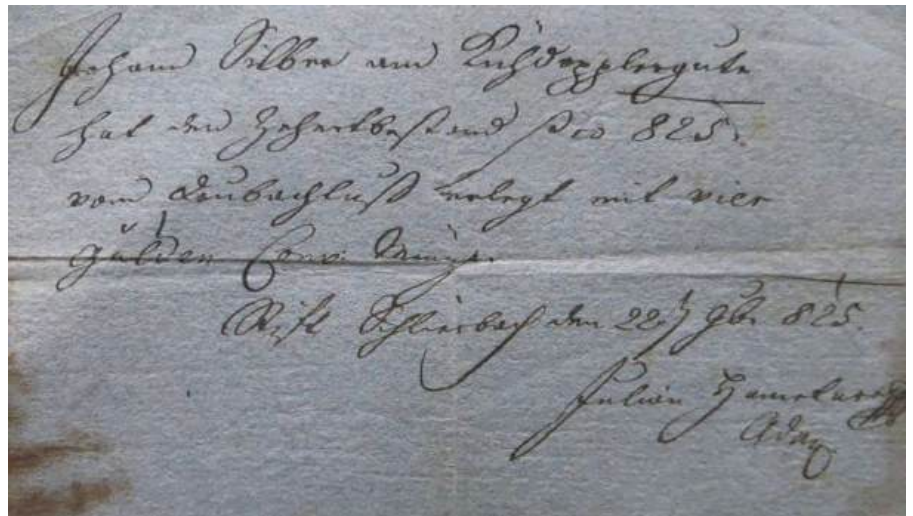 Johann Silber am Kühdopplergute
hat den Zehentbestand pro 825.
vom Laubachluß erlegt mit vier
Gulden Conv. Münze.
Stift Schlierbach den 22t 9br. 825.
Julian